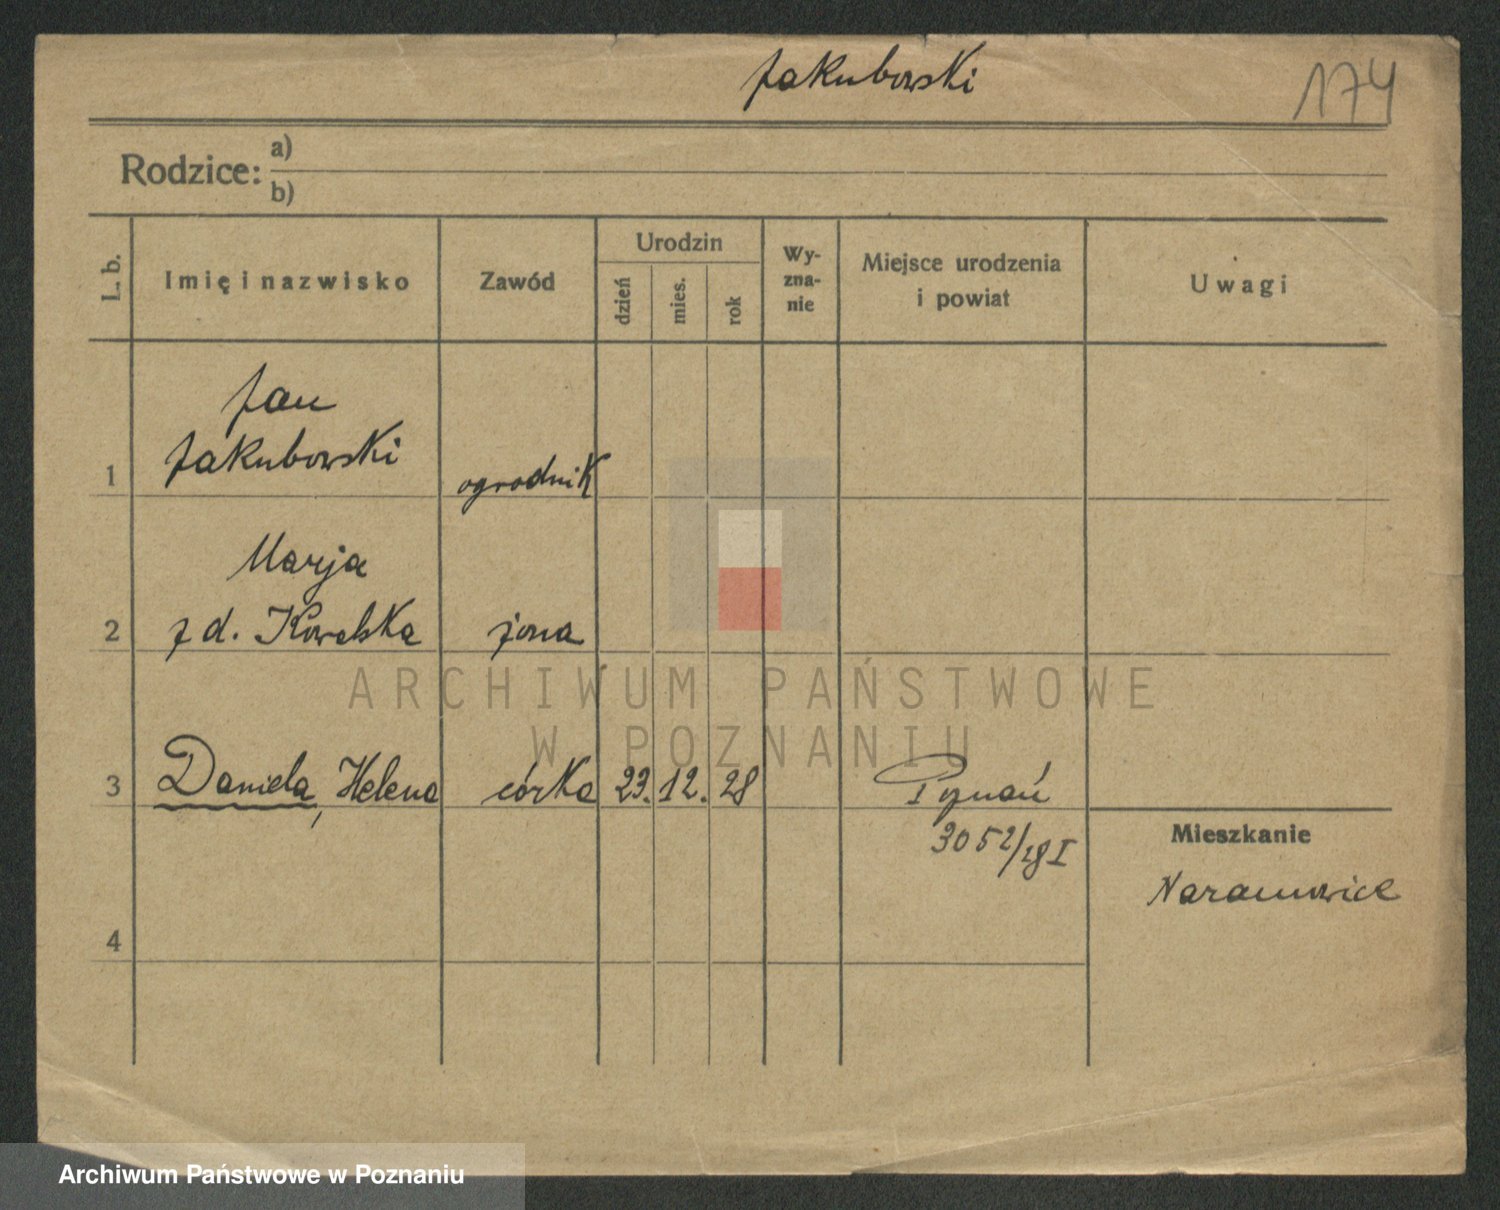 Jakubowski
174
Rodzice: a)
b)
L. b.
Imię i nazwisko
Zawód
Urodzin
dzień
mies.
rok
Wy-
zna-
nie
Miejsce urodzenia
i powiat
Uwagi
Jan
1 Jakubowski ogrodnik
Marja
2 z d. Kowalska żona
ARCHIWUM PAŃSTWOWE
W POZNANIU
3 Daniela, Helena córka 23. 12. 28 Poznań
3052/28 I
Mieszkanie
Naramowice
4
Archiwum Państwowe w Poznaniu